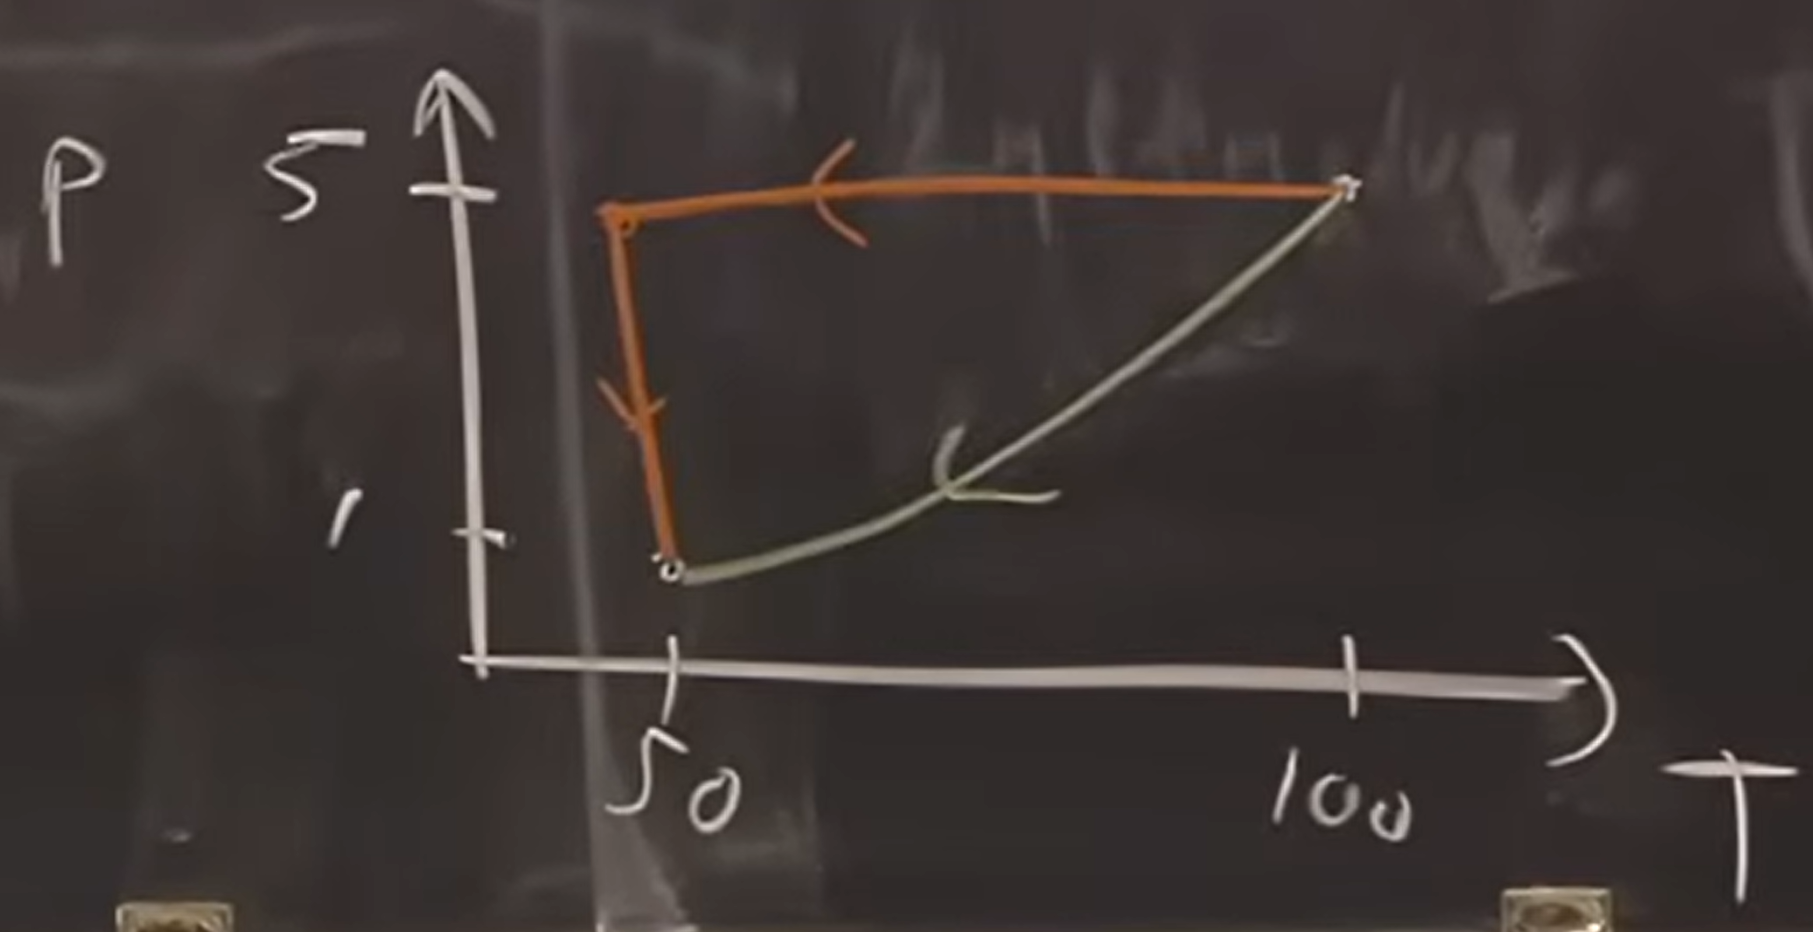 P
5
1
50
100
T